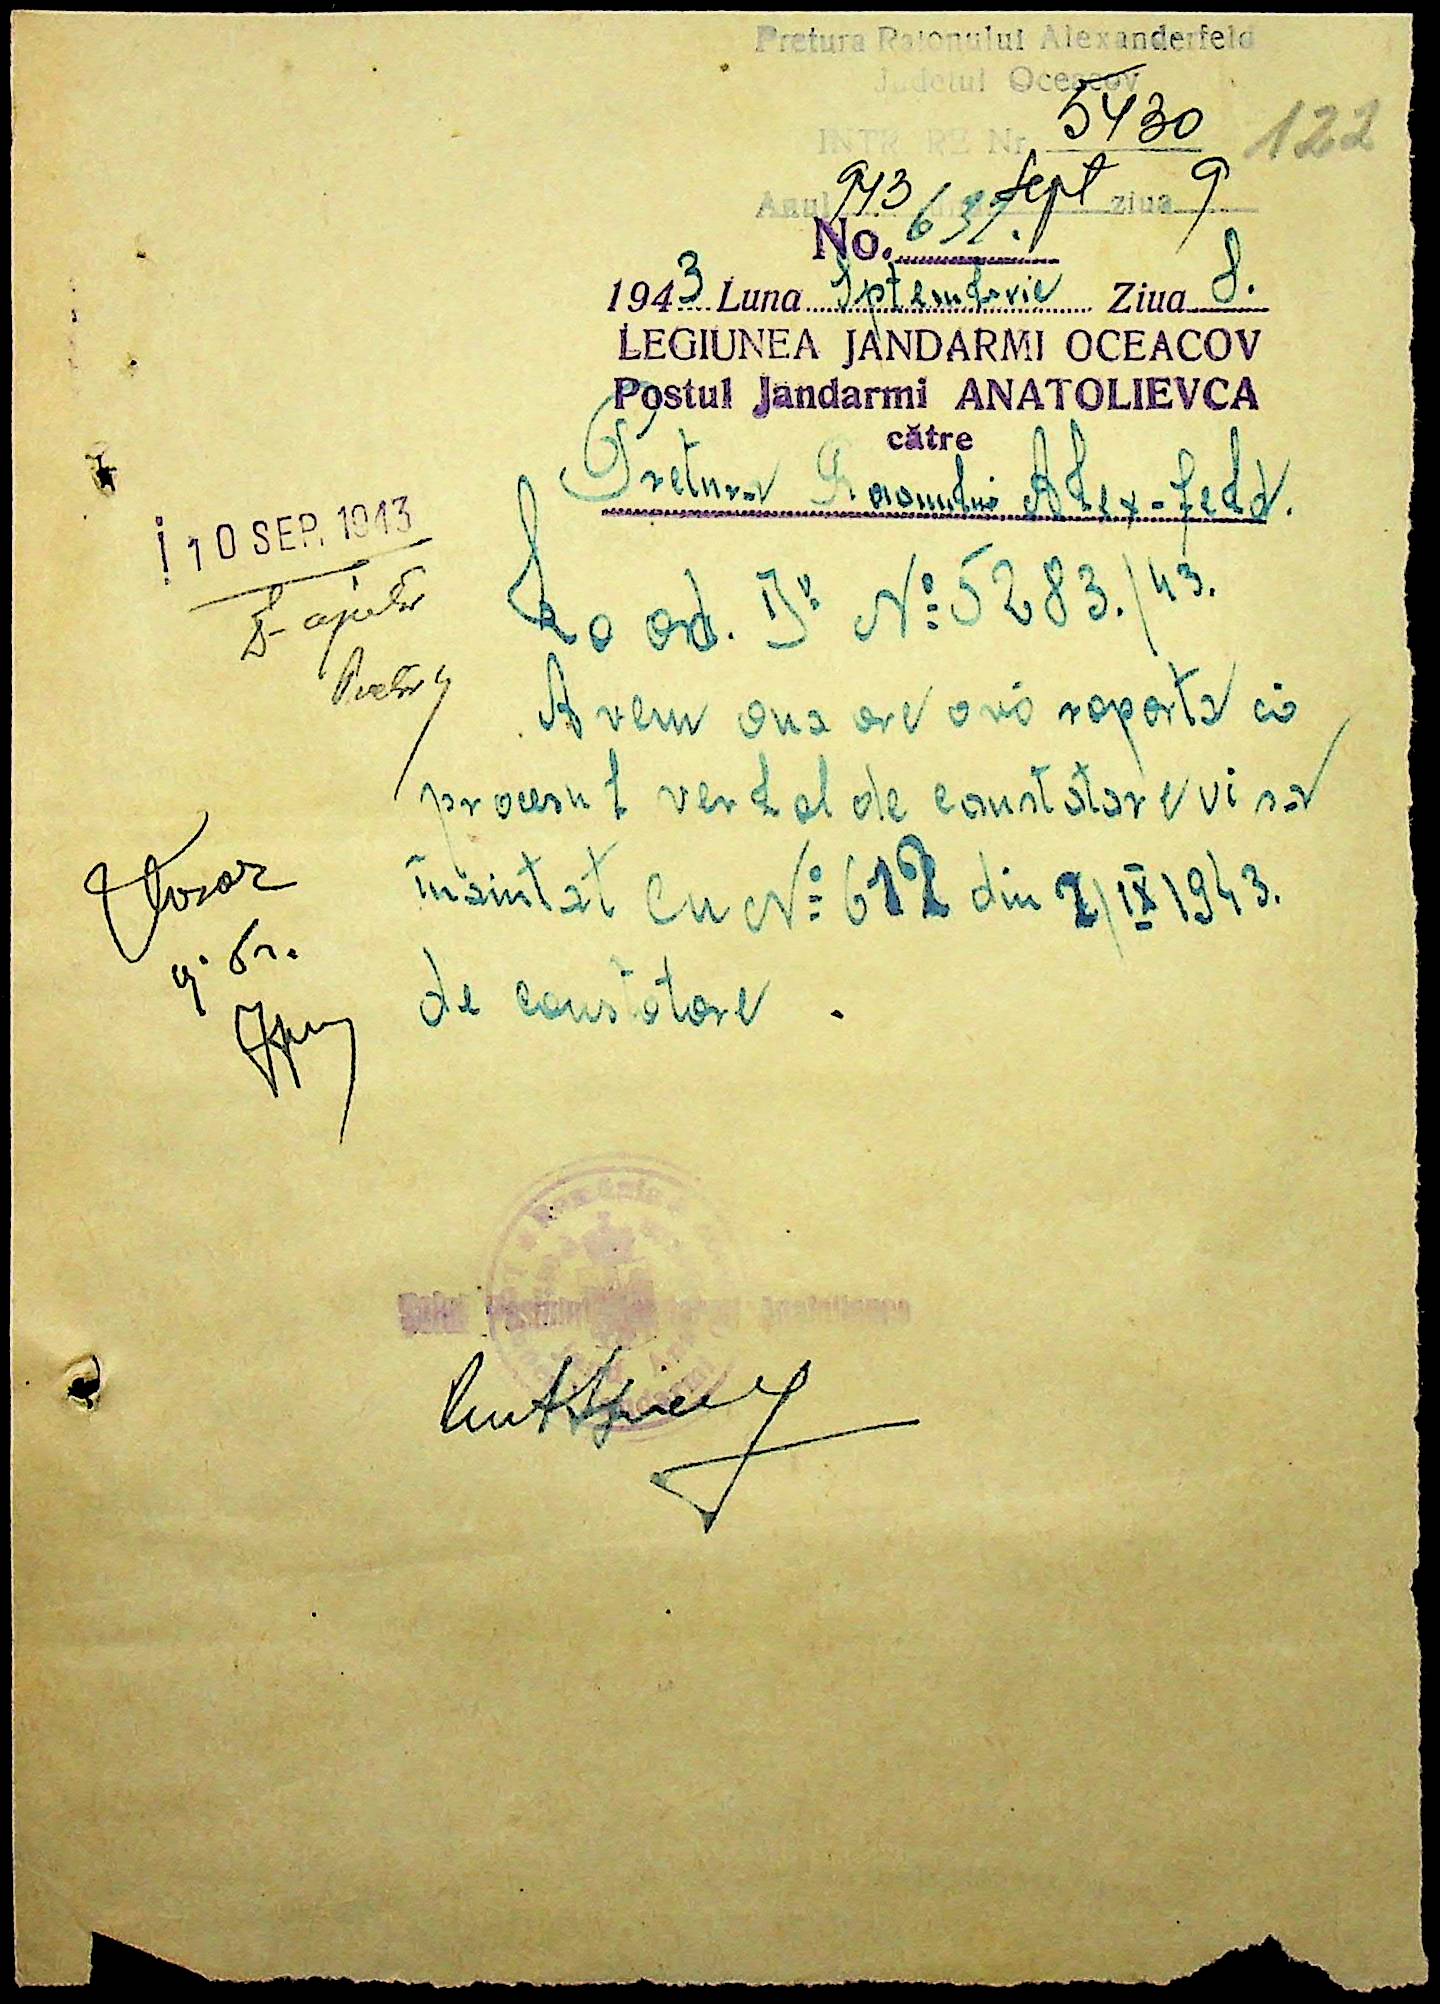 Pretura Raionului Alexanderfeld
Judetul Oceacov
INTRARE Nr. 5430
122
Anul 943 luna Sept ziua 9
No. 637.
1943 Luna Sptembrie Ziua 8.
LEGIUNEA JANDARMI OCEACOV
Postul Jandarmi ANATOLIEVCA
către
Pretura Raionului Alex-feld.
10 SEP. 1943
La ord. Dv No 5283./43.
Avem onoare a vă raporta că
procesul verbal de constatare vi sa
înaintat cu No 612 din 2/IX/1943.
de constatare.
Dosar
Șeful Postului Jandarmi Anatolievca